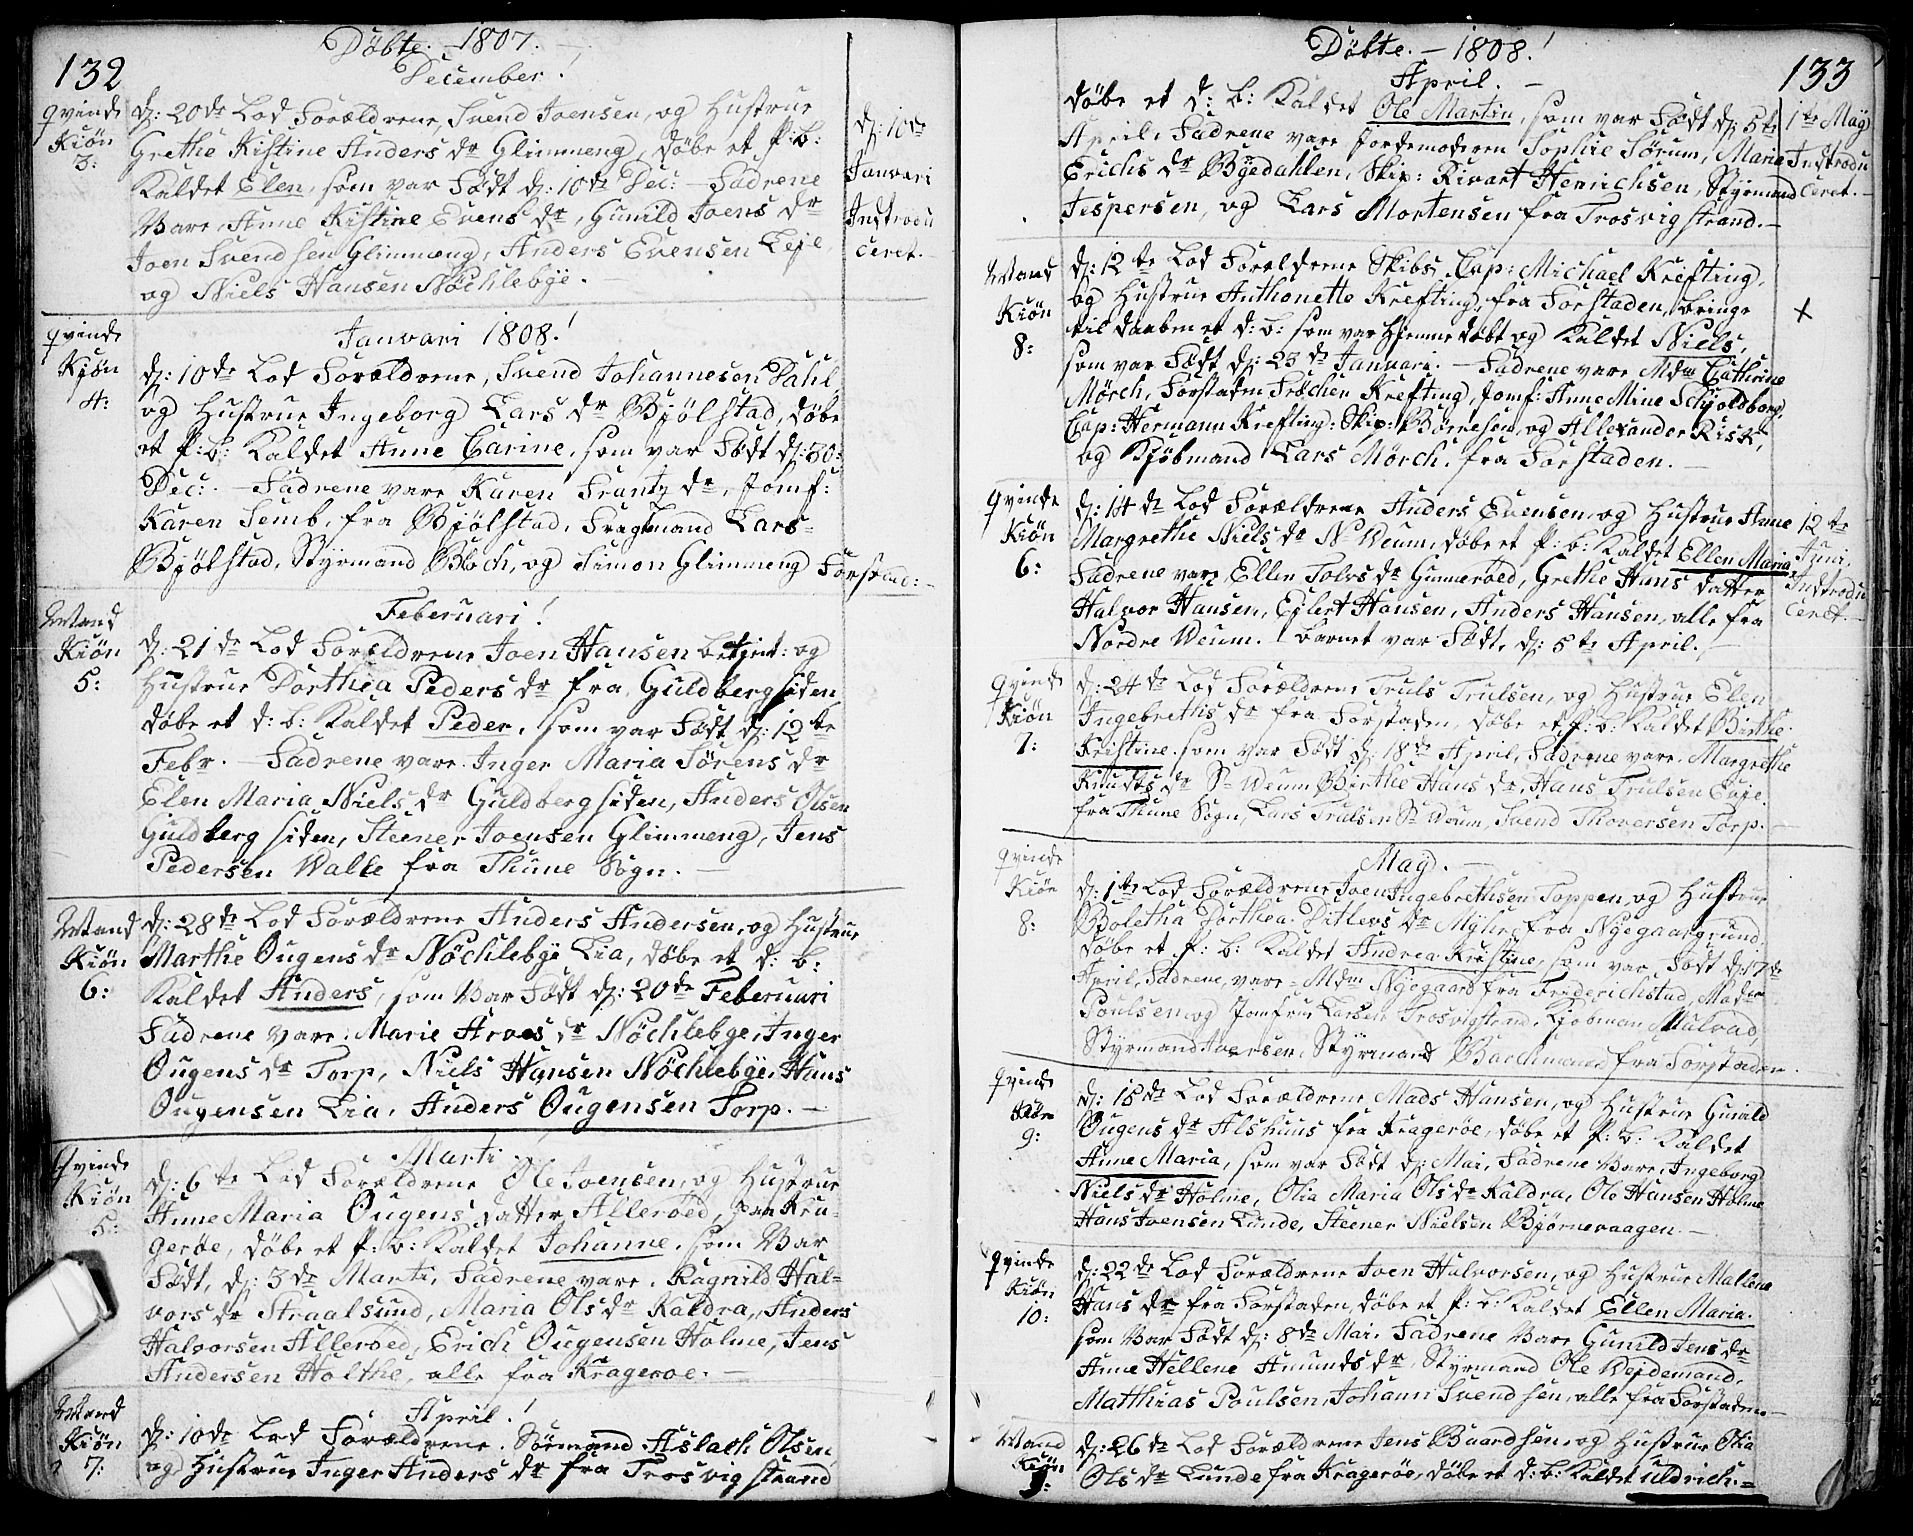 132
Döbte. - 1807. -
December!
qvinde
Kiön
3:
d: 20de Lod Forældrene, Svend Joensen, og Hustrue
Grethe Kistine Anders dr Glimmeng, döbe et p: b:
Kaldet Elen, som var Födt d: 10de Dec: - Fadrene
Vare, Anne Kistine Evens dr, Gunild Joens dr
Joen Svendsen Glimmeng, Anders Evensen Leje,
og Niels Hansen Nöchlebÿe.
d: 10de
Januari
Indtrodu
ceret.
qvinde
Kjön
4:
Januari 1808!
d: 10de Lod Forældrene, Svend Johannesen Dahl
og Hustrue Ingeborg Lars dr Bjölstad, döbe
et p: b: Kaldet Anne Carine, som var Födt d: 30:
Dec: - Fadrene vare Karen Frantz dr, Jomf:
Karen Semb, fra Bjölstad, Fragtmand Lars
Bjölstad, Stÿrmand Bloch, og Simon Glimmeng Forstad: -
Mand
Kiön
5:
Februari!
d: 21de Lod Forældrene Joen Hansen betjent: og
Hustrue Dorthea Peders dr fra Guldbergsiden
döbe et d: b: Kaldet Peder, som var Födt d: 12te
Febr. - Fadrene vare Inger Maria Sörens dr
Elen Maria Niels dr Guldbergsiden, Anders Olsen
Guldbergsiden, Steener Joensen Glimmeng, Jens
Pedersen Walle fra Thune Sogn. -
Mand
Kiön
6:
d: 28de Lod Forældrene Anders Andersen, og Hustrue
Marthe Ougens dr Nöchlebÿe Lia, döbe et d: b:
Kaldet Anders, som Var Födt d: 20de Februari
Fadrene vare, Marie Arves dr Nöchlebÿe, Inger
Ougens dr Torp, Niels Hansen Nöchlebÿe, Hans
Ougensen Lia, Anders Ougensen Torp. -
Qvinde
Kiön
5:
Marti
d: 6te Lod Forældrene Ole Joensen, og Hustrue
Anne Maria Ougens datter Alleröed, fra Kra-
geröe, döbe et p: b: Kaldet Johanne, som Var
Födt, d: 3de Marti, Fadrene vare, Ragnild Hal-
vors dr Straalsund, Maria Ols dr Kaldra, Anders
Halvorsen Alleröed, Erich Ougensen Holme, Jens
Andersen Holthe, alle fra Krageroe. -
Mand
Kiön
7:
April!
d: 10de Lod Forældrene, Sömand Aslach Olsen,
og Hustrue Inger Anders dr fra Trosvigstrand
133
Döbte. - 1808!
April. -
döbe et d: b: Kaldet Ole Martin, som var Födt d: 5te
April, Fadrene vare Jordemoderen Sophie Sörum, Maria
Erichs dr Bÿedahlen, Skip: Rivart Henrichsen, Stÿrmand
Jespersen, og Lars Mortensen fra Trosvigstrand. -
1te Maÿ
Indtrodu
ceret. -
Mand
Kiön
8:
d: 12te Lod Forældrene Skibs Cap: Michael Krefting,
og Hustrue Anthonette Krefting, fra Forstaden, bringe
til daaben et d: b: som var Hjemmedöbt og Kaldet Niels,
som var Födt d: 23de Januari. - Fadrene vare Mdm Cathrine
Mörch, Forstaden Fröchen Krefting, Jomf: Anne Mine Schjoldborg,
Cap: Hermann Krefting: Skip: Börresen, og Allexander Risk,
og Kjöbmand Lars Mörch, fra Forstaden. -
x
qvinde
Kiön
6:
d: 14de Lod Forældrene Anders Evensen, og Hustrue Anne
Margrethe Niels dr Nr Weum, döbe et p: b: Kaldet Ellen Maria
Fadrene vare Ellen Tolvs dr Gunneröed, Grethe Hans datter
Halvor Hansen, Ejlert Hansen, Anders Hansen, alle fra
Nordre Weum. barnet var Födt, d: 5te April. -
12te
Juni,
Indtrodu
ceret. -
qvinde
Kiön
7:
d: 24de Lod Forældrene Truls Trulsen, og Hustrue Elen
Ingebreths dr fra Forstaden, döbe et p: b: Kaldet Birthe
Kristine som var Födt d: 18de April, Fadrene vare Margrethe
Knudts dr Sr Weum Birthe Hans dr, Hans Trulsen Enje
fra Thune Sogn, Lars Trulsen Sr Weum, Svend Thoversen Torp. -
qvinde
Kiön
8:
Maÿ. -
d: 1te Lod Forældrene Joen Ingebrethsen Toppen, og Hustrue
Boletha Dorthea Ditlevs dr Mÿhre, fra Nÿegaargrund
döbe et p: b: Kaldet Andrea Kristine, som var Födt d: 17de
April, Fadrene, vare = Mdm Nÿegaard fra Friderichstad, Madm
Poulsen og Jomfrue Larsen Trosvigstrand, Kjöbman Malvad,
Stÿrmand Iversen, Stÿrmand Barchmand fra Forstaden.
qvinde
Kiön
9:
d: 15de Lod Forældrene Mads Hansen, og Hustrue Gunild
Ougens dr Alshuus fra Krageröe, döbe et p: b: Kaldet
Anne Maria, som var Födt d: Mai, Fadrene Vare, Ingeborg
Niels dr Holme, Olia Maria Ols dr Kaldra, Ole Hansen Holme
Hans Ivensen Lunde, Steener Nielsen Bjørnevaagen. -
qvinde
Kiön
10:
d: 22de Lod Forældrene Joen Halvorsen, og Hustrue Mallene
Hans dr fra Forstaden, döbe et p: b: Kaldet Ellen Maria.
som Var Födt d: 8de Mai, Fadrene Vare Gunild Jens dr
Anne Hellene Amunds dr, Stÿrmand Ole Wejdemand,
Matthias Poulsen, Johann Svendsen, alle fra Forstaden -
Mand
Kiön
9:
d: 26de Lod Forældrene Jens Baardsen, og Hustrue Olia
Ols dr Lunde fra Krageröe, döbe et d: b: Kaldet Uldrich. =